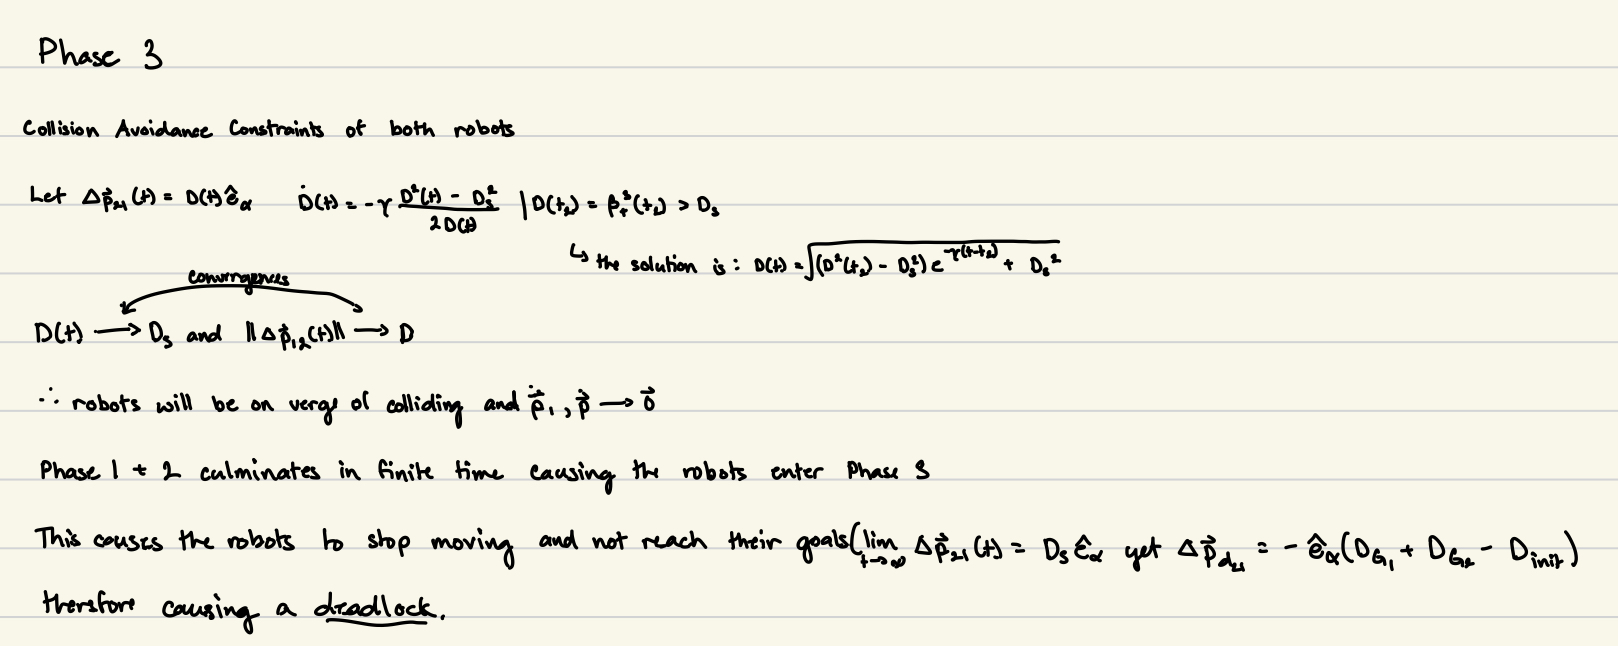 Phase 3
Collision Avoidance Constraints of both robots
Let Δp⃗₂₁(t) = D(t) ê_α   Ḋ(t) = -γ (D²(t) - D_s²) / 2D(t) | D(t₂) = β₊³(t₂) > D_s
↳ the solution is : D(t) = √((D²(t₂) - D_s²) e^(-γ(t-t₂)) + D_s²)
convergences
D(t) → D_s and ‖Δp⃗₁₂(t)‖ → D
∴ robots will be on verge of colliding and ṗ⃗₁, ṗ⃗ → 0⃗
Phase 1 + 2 culminates in finite time causing the robots enter Phase 3
This causes the robots to stop moving and not reach their goals (lim t→∞ Δp⃗₂₁(t) = D_s ê_α yet Δp⃗_d₂₁ = - ê_α (D_G₁ + D_G₂ - D_init)
therefore causing a deadlock.